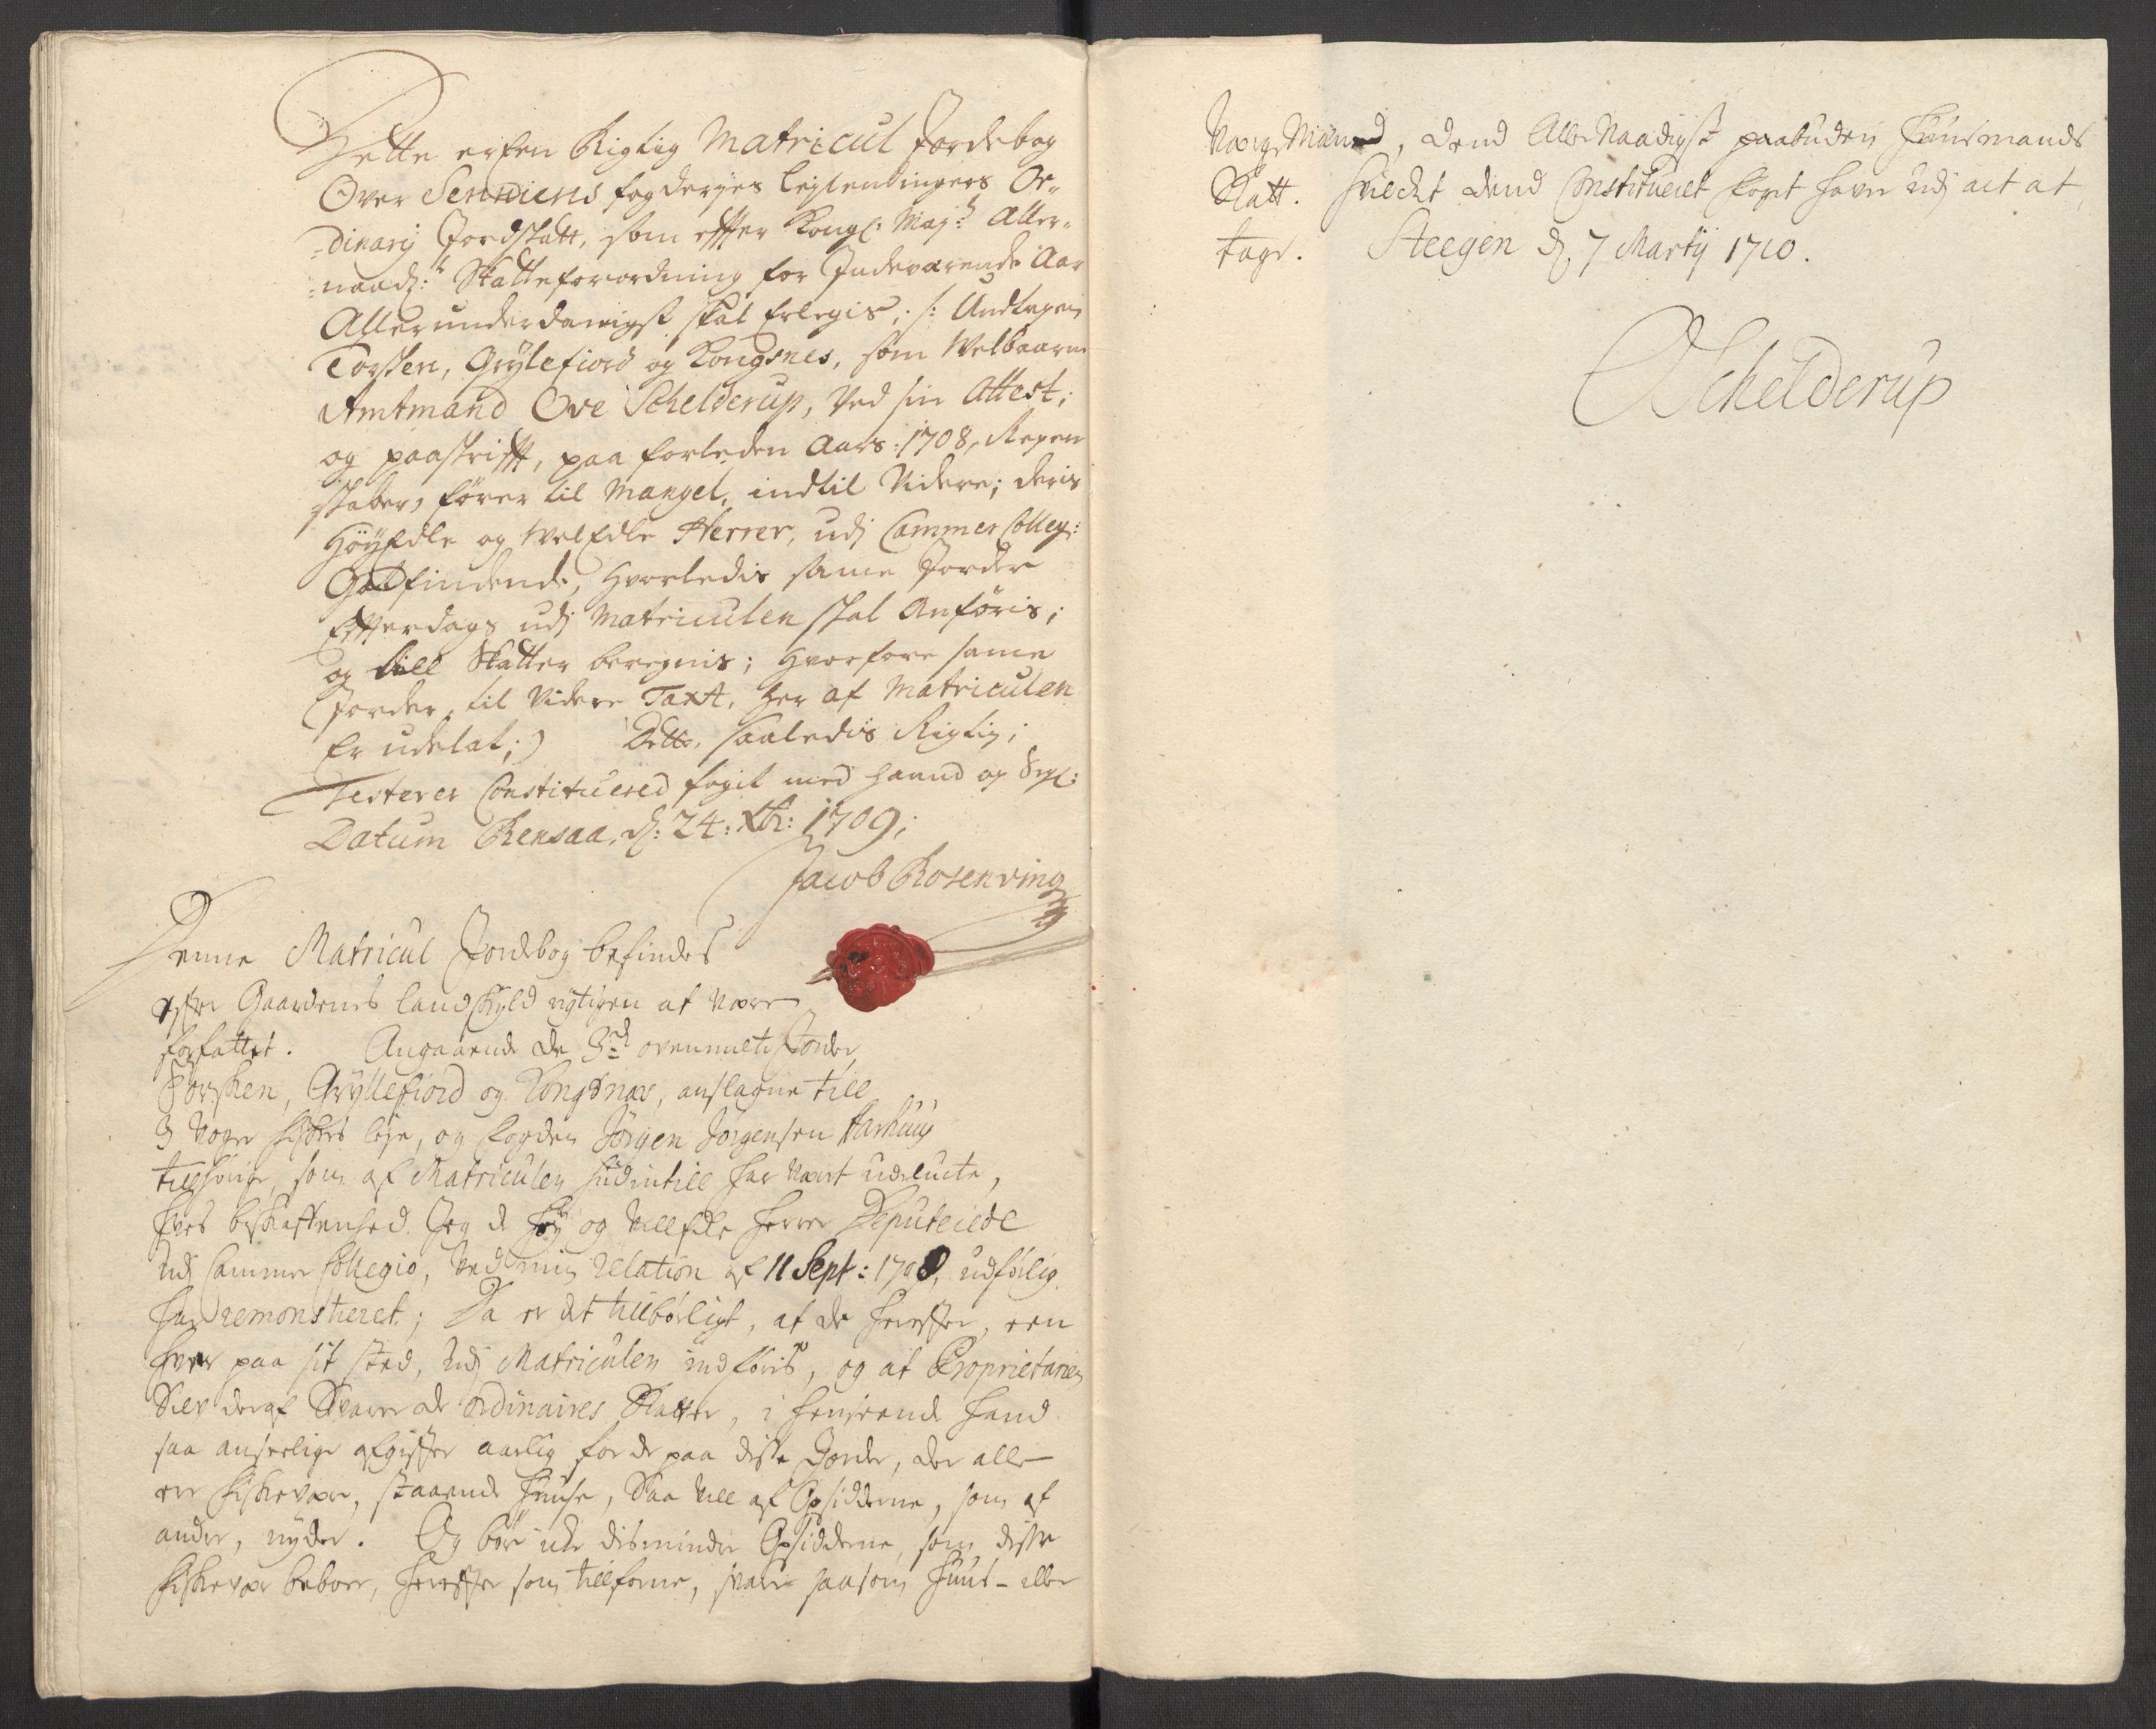 Dette er een Rigtig Matricul Jordebog
Over Senniens fogderjes leylendingers Or¬
¬dinarj Jordskatt, som effter Kongl: May:ts Aller¬
¬naad:te Skatteforordning for Indeværende Aar
Allerunderdanigst skal Erlegis; /: Undtagen
Torsken, Grÿlefiord og Kongsnes, som Welbaarne
Amtmand Ove Schelderup, Ved sin Attest;
og paaskrifft, paa forleden Aars: 1708, Regen
skaber, fører til Mangel, indtil Videre; deris
HøÿEdle og WelEdle Herrer, udj Cammer Colleg:
Gotfindende, Hvorledis same Jorder
Effterdags udj Matriculen skal Anføris;
og till Skatter beregnis; Hvorfore same
Jorder, til Videre Taxt, her af Matriculen
Er udelat;) Dette, saaledis Rigtig;
Testerer Constituered fogit med haand og Segl:
Datum Rensaa, d: 24: Xbr: 1709;
Jacob Rosenving
Denne Matricul Jordebog befindes
efter Gaardenes landskyld rigtigen at være
forfattet. Angaaende de 3de ovenmelte Jorder
Torsken, Gryllefiord og Kongsnæs, anslagne till
3 Voger fiskes leje, og fogden Jørgen Jørgensen Aarhuus
tilhørige, som af Matriculen hidintill har været udelucte,
hves beskaffenhed Jeg de høy og VellEdle herrer Deputerede
udj Cammer Collegio, Ved min relation af 11 Sept: 1708, udførlig
har remonstreret; Da er det tilbørligt, at de herefter, een
hver paa sit sted, udj Matriculen indføris, og at Proprietarien
Selv deraf Svarer de ordinaires Skatter, i henseende hand
saa anseelige afgifter aarlig for de paa disse Jorder, der alle
ere fiskevær, staaende huuse, Saa vell af Opsidderne, som af
andre, nyder. Og bør icke disminder Opsidderne, som disse
fiskevær beboer, herefter som tillforne, svare saasom huus- eller
Norge Mænd, dend AllerNaadigst paabudne huusmands
Skatt. hvilchet dend Constitueret foget haver udj act at
tage. Steegen d. 7 Martij 1710.
OSchelderup